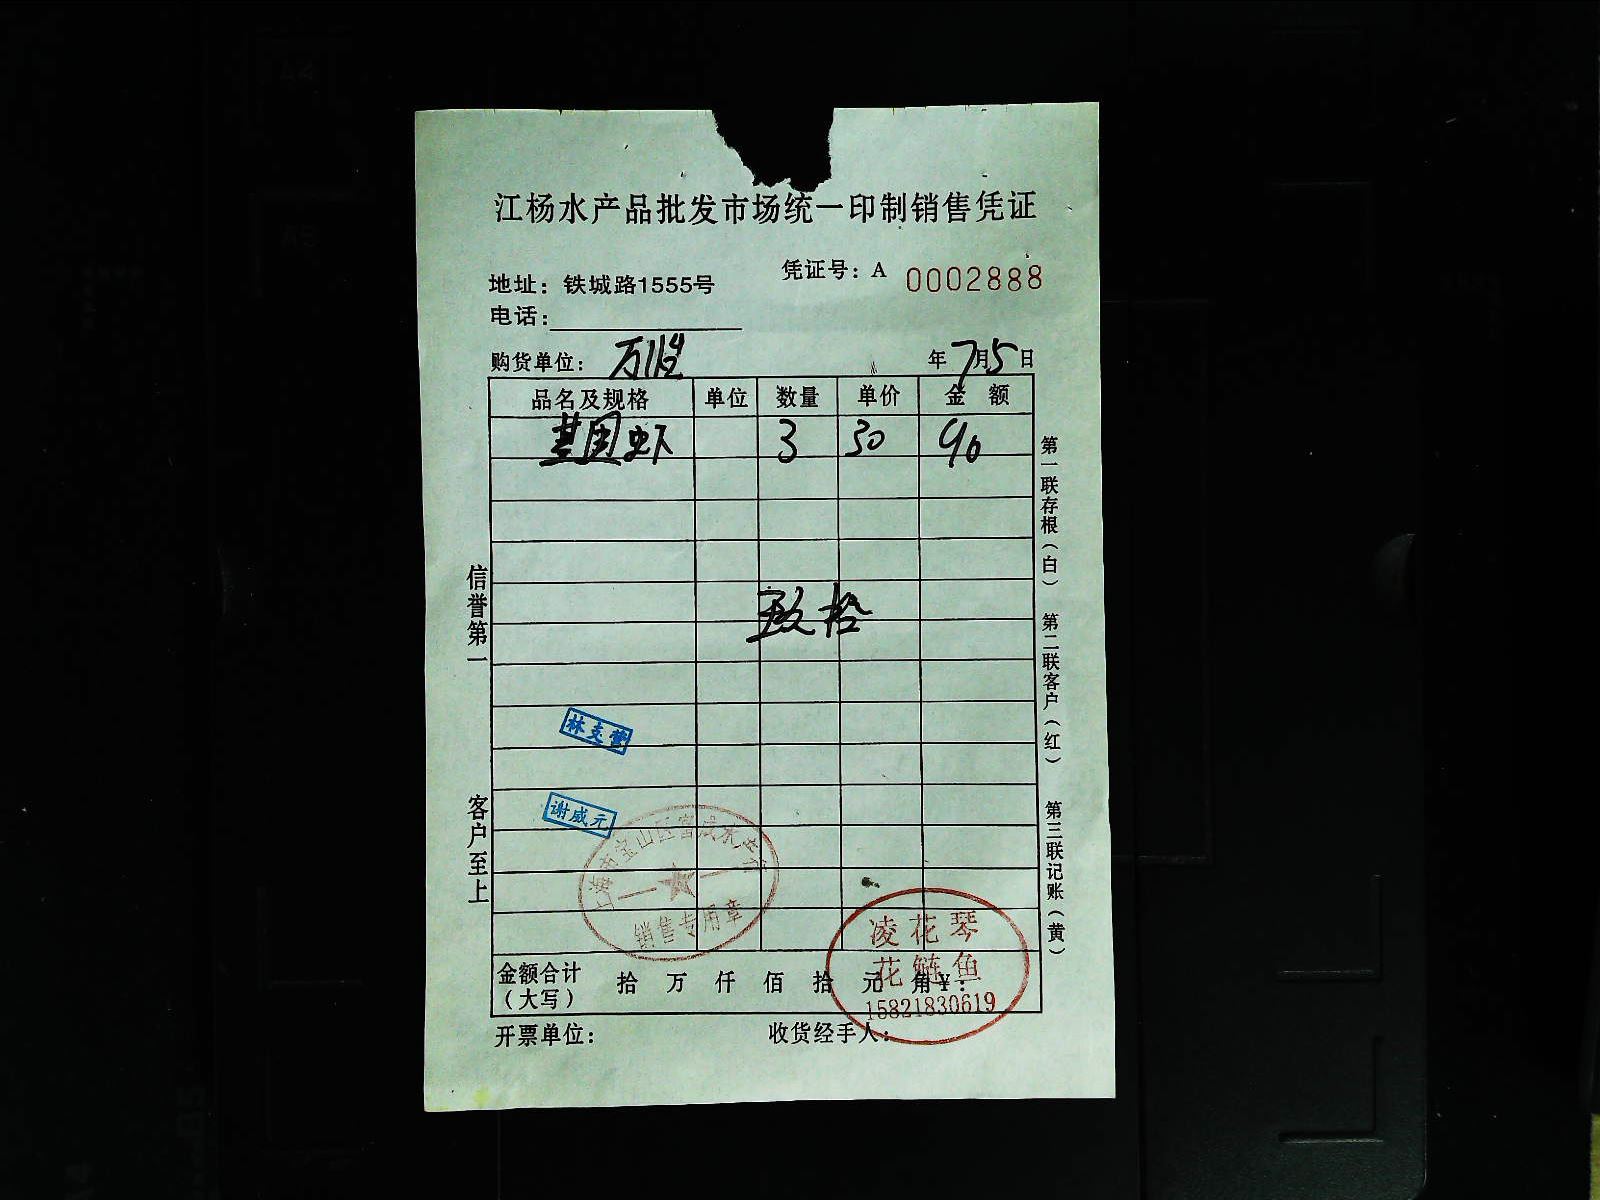 江杨水产品批发市场统一印制销售凭证
凭证号：A 0002888
地址：铁城路1555号
电话：
购货单位： 年7月5日
品名及规格 单位 数量 单价 金额
基围虾 3 30 90
玖拾
林支管
谢咸元
上海市宝山区富成水产行
销售专用章
凌花琴
花鲢鱼
15821830619
金额合计（大写） 拾 万 仟 佰 拾 元 角 ¥：
开票单位： 收货经手人：
信誉第一
客户至上
第一联存根（白）
第二联客户（红）
第三联记账（黄）